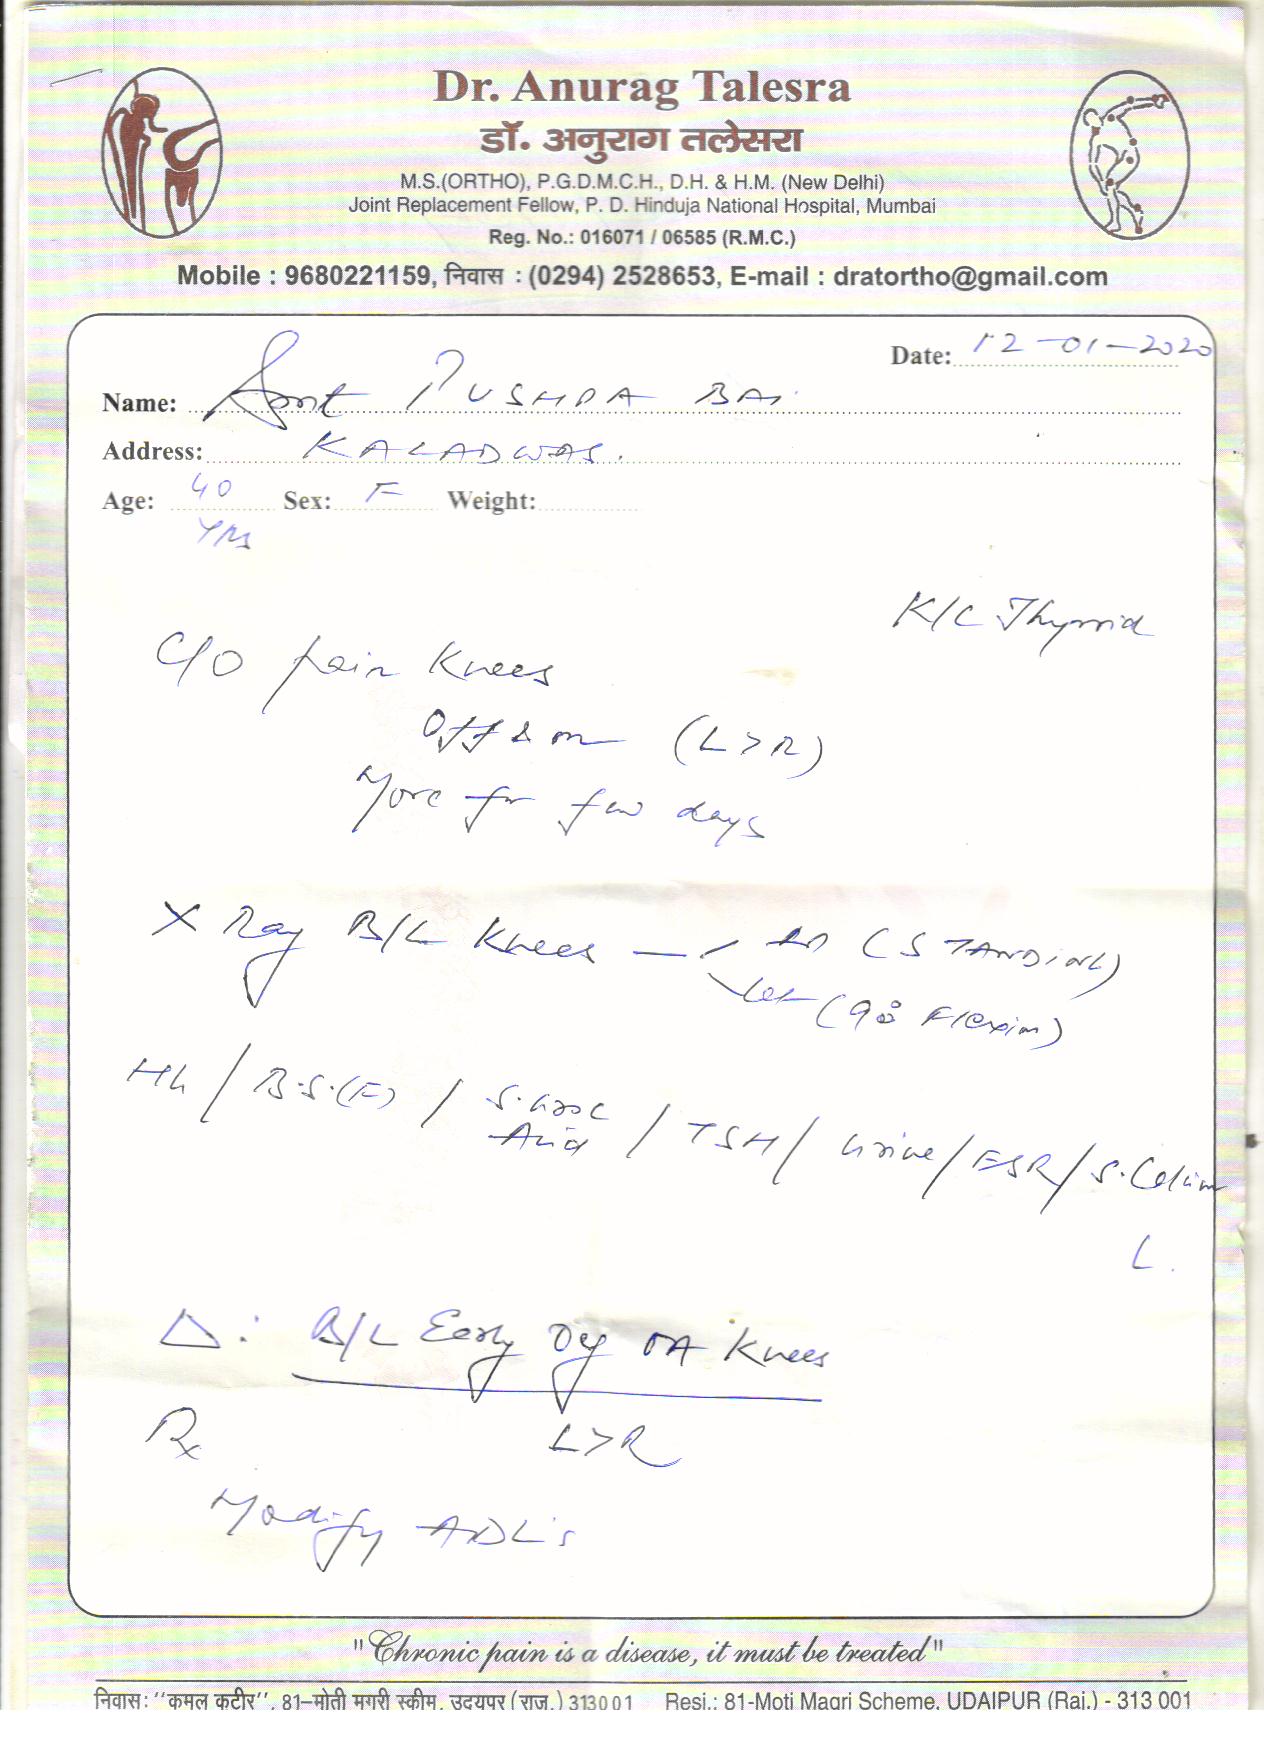 Dr. Anurag Talesra
डॉ. अनुराग तलेसरा
M.S.(ORTHO), P.G.D.M.C.H., D.H. & H.M. (New Delhi)
Joint Replacement Fellow, P. D. Hinduja National Hospital, Mumbai
Reg. No.: 016071 / 06585 (R.M.C.)
Mobile : 9680221159, निवास : (0294) 2528653, E-mail : dratortho@gmail.com
Date: 12-01-2020
Name: Smt PUSHPA BAI
Address: KALADWAS.
Age: 40 Sex: F Weight:
Yrs
K/C Thyroid
C/O pain Knees
Off & on (L>R)
More for few days
X Ray B/L Knees — AP (STANDING)
Lat (90° Flexion)
Hb / B.S.(F) / S. Uric Acid / TSH / Urine / ESR / S. Calcium
L.
Δ: B/L Early Deg OA Knees
L>R
Rx
Modify ADL's
"Chronic pain is a disease, it must be treated"
निवास: "कमल कुटीर", 81-मोती मगरी स्कीम, उदयपुर (राज.) 313001 Resi.: 81-Moti Magri Scheme, UDAIPUR (Raj.) - 313 001